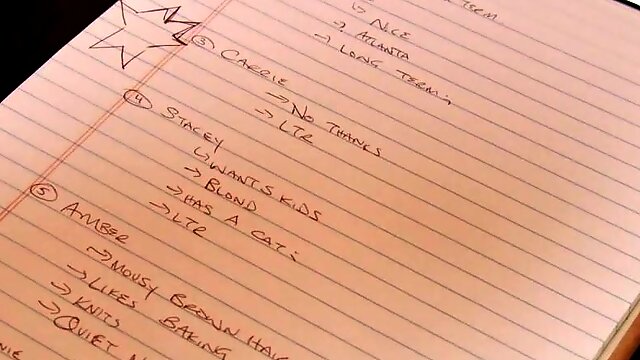 TERM
↳ NICE
→ ATLANTA
→ LONG TERM:
③ CARRIE
→ NO THANKS
→ LTR
④ STACEY
↳ WANTS KIDS
→ BLOND
→ HAS A CAT:
→ LTR
⑤ AMBER
→ MOUSY BROWN HAIR
→ LIKES BAKING
→ KNITS
→ QUIET